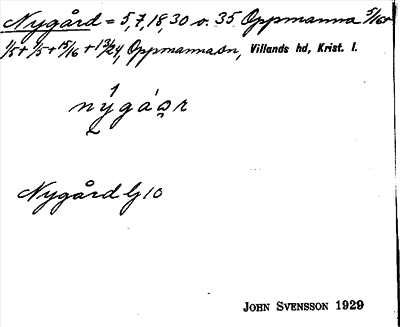 Nygård = 5, 7, 18, 30 o. 35 Oppmanna 5/16+
1/5+1/5+15/16+13/24, Oppmanna sn, Villands hd, Krist. l.
Nygård Gg 10
JOHN SVENSSON 1929